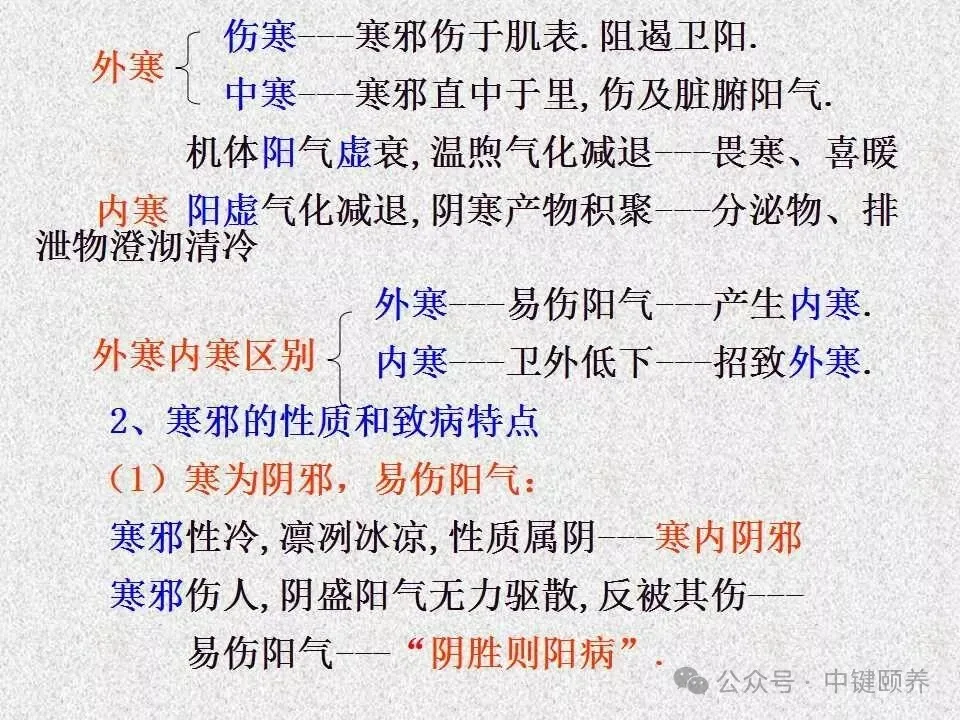 外寒
伤寒---寒邪伤于肌表.阻遏卫阳.
中寒---寒邪直中于里,伤及脏腑阳气.
机体阳气虚衰,温煦气化减退---畏寒、喜暖
内寒 阳虚气化减退,阴寒产物积聚---分泌物、排
泄物澄沏清冷
外寒内寒区别
外寒---易伤阳气---产生内寒.
内寒---卫外低下---招致外寒.
2、寒邪的性质和致病特点
（1）寒为阴邪，易伤阳气：
寒邪性冷,凛冽冰凉,性质属阴---寒内阴邪
寒邪伤人,阴盛阳气无力驱散,反被其伤---
易伤阳气---“阴胜则阳病”.
公众号·中键颐养